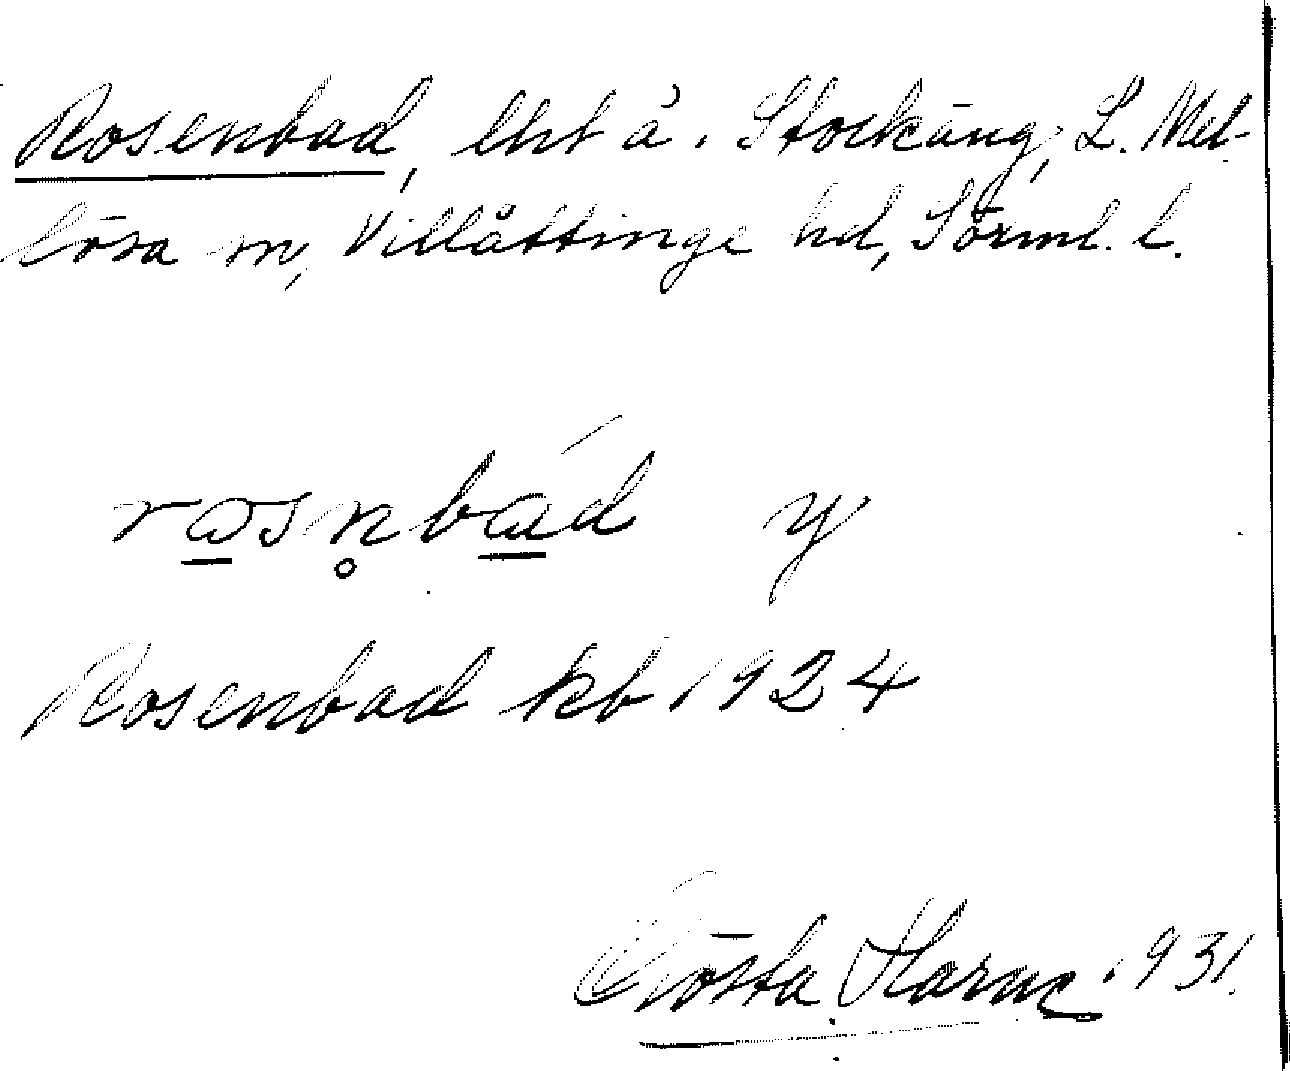 Rosenbad, lht å. Stockäng, L. Mel-
lösa sn, Villåttinge hd, Sörml. l.
rosn̥bád y
Rosenbad kb 1924
Gösta 1931.